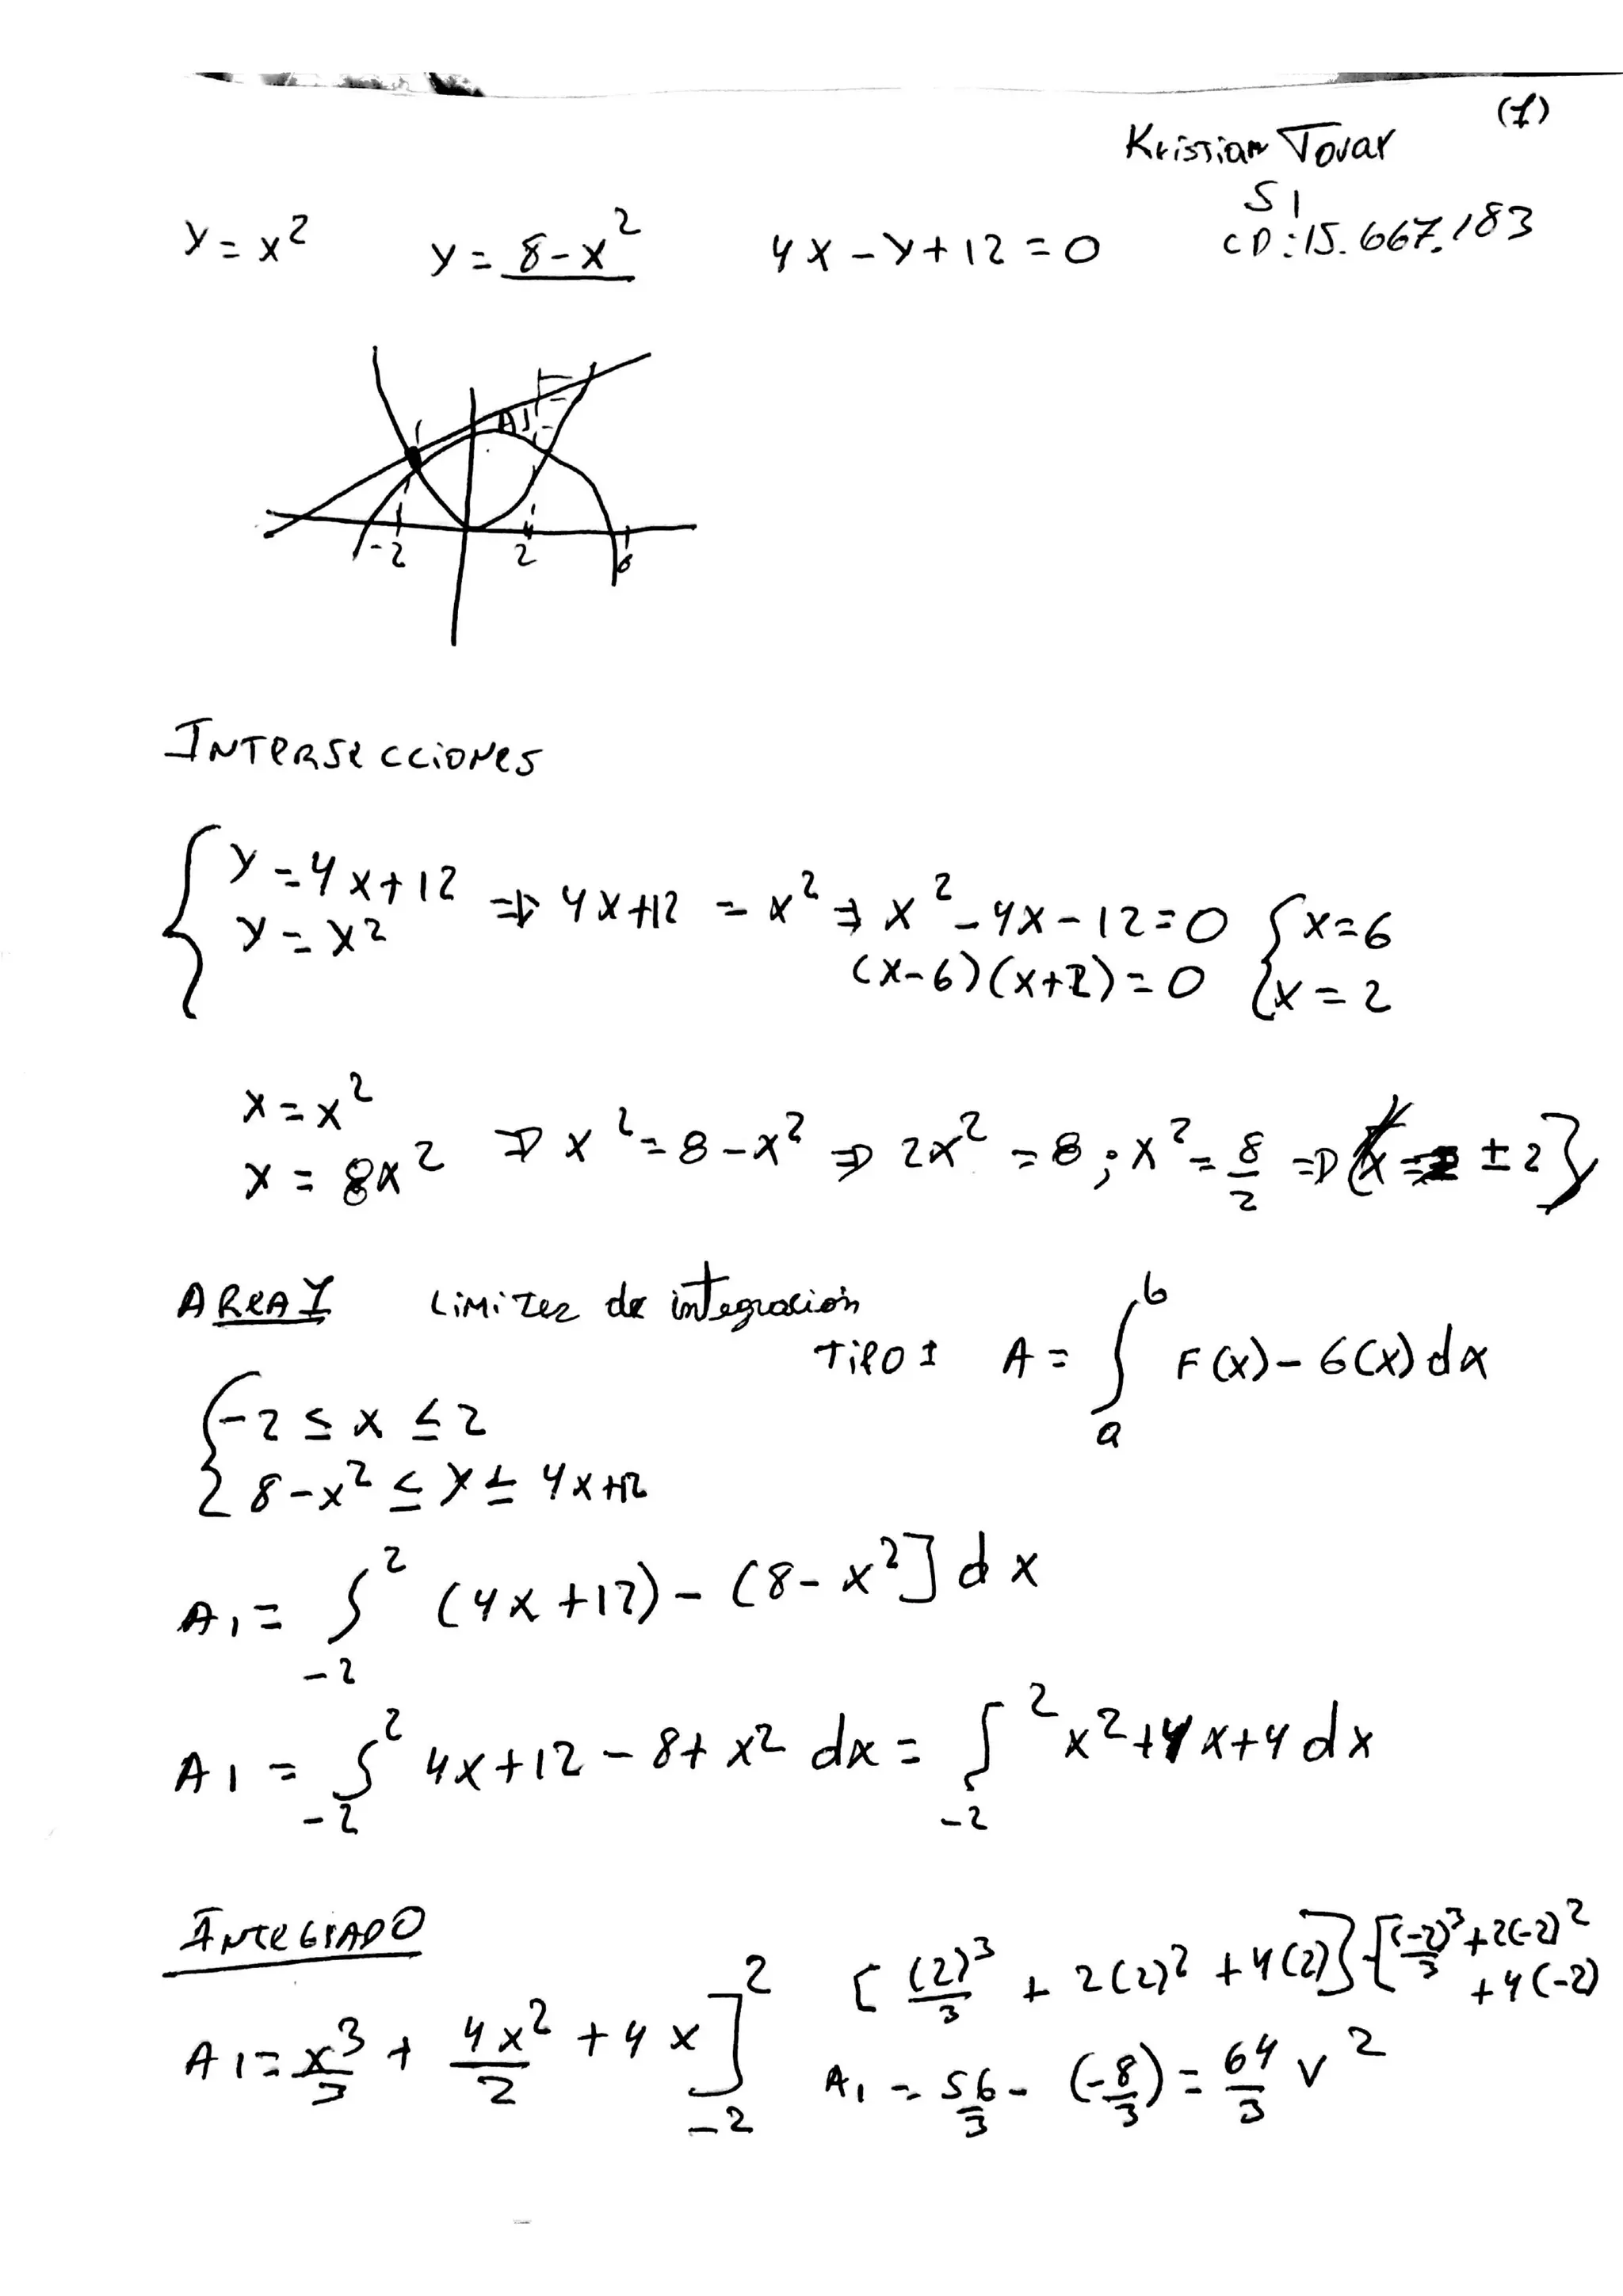 (1)
Kristian Tovar
S1
CD:15.667.183
y = x²    y = 8-x²    4x-y+12=0
A1
-2    2    6
Intersecciones
{ y=4x+12 ⇒ 4x+12 = x² ⇒ x²-4x-12=0 { x=6
y=x²    (x-6)(x+2)=0    x=2
x=x²
x=8x² ⇒ x²=8-x² ⇒ 2x²=8; x²=8/2 ⇒ {x= ±2}
Area I    Limites de integración
Tipo I    A = ∫ₐᵇ F(x)-G(x)dx
{ -2≤x≤2
8-x²≤y≤4x+12
A1 = ∫₋₂² (4x+12)-(8-x²]dx
A1 = ∫₋₂² 4x+12-8+x² dx = ∫₋₂² x²+4x+4dx
Integrado
A1 = x³/3 + 4x²/2 + 4x]₋₂²    [(2)³/3 + 2(2)² + 4(2)] - [(-2)³/3 + 2(-2)² + 4(-2)
A1 = 56/3 - (-8/3) = 64/3 v²